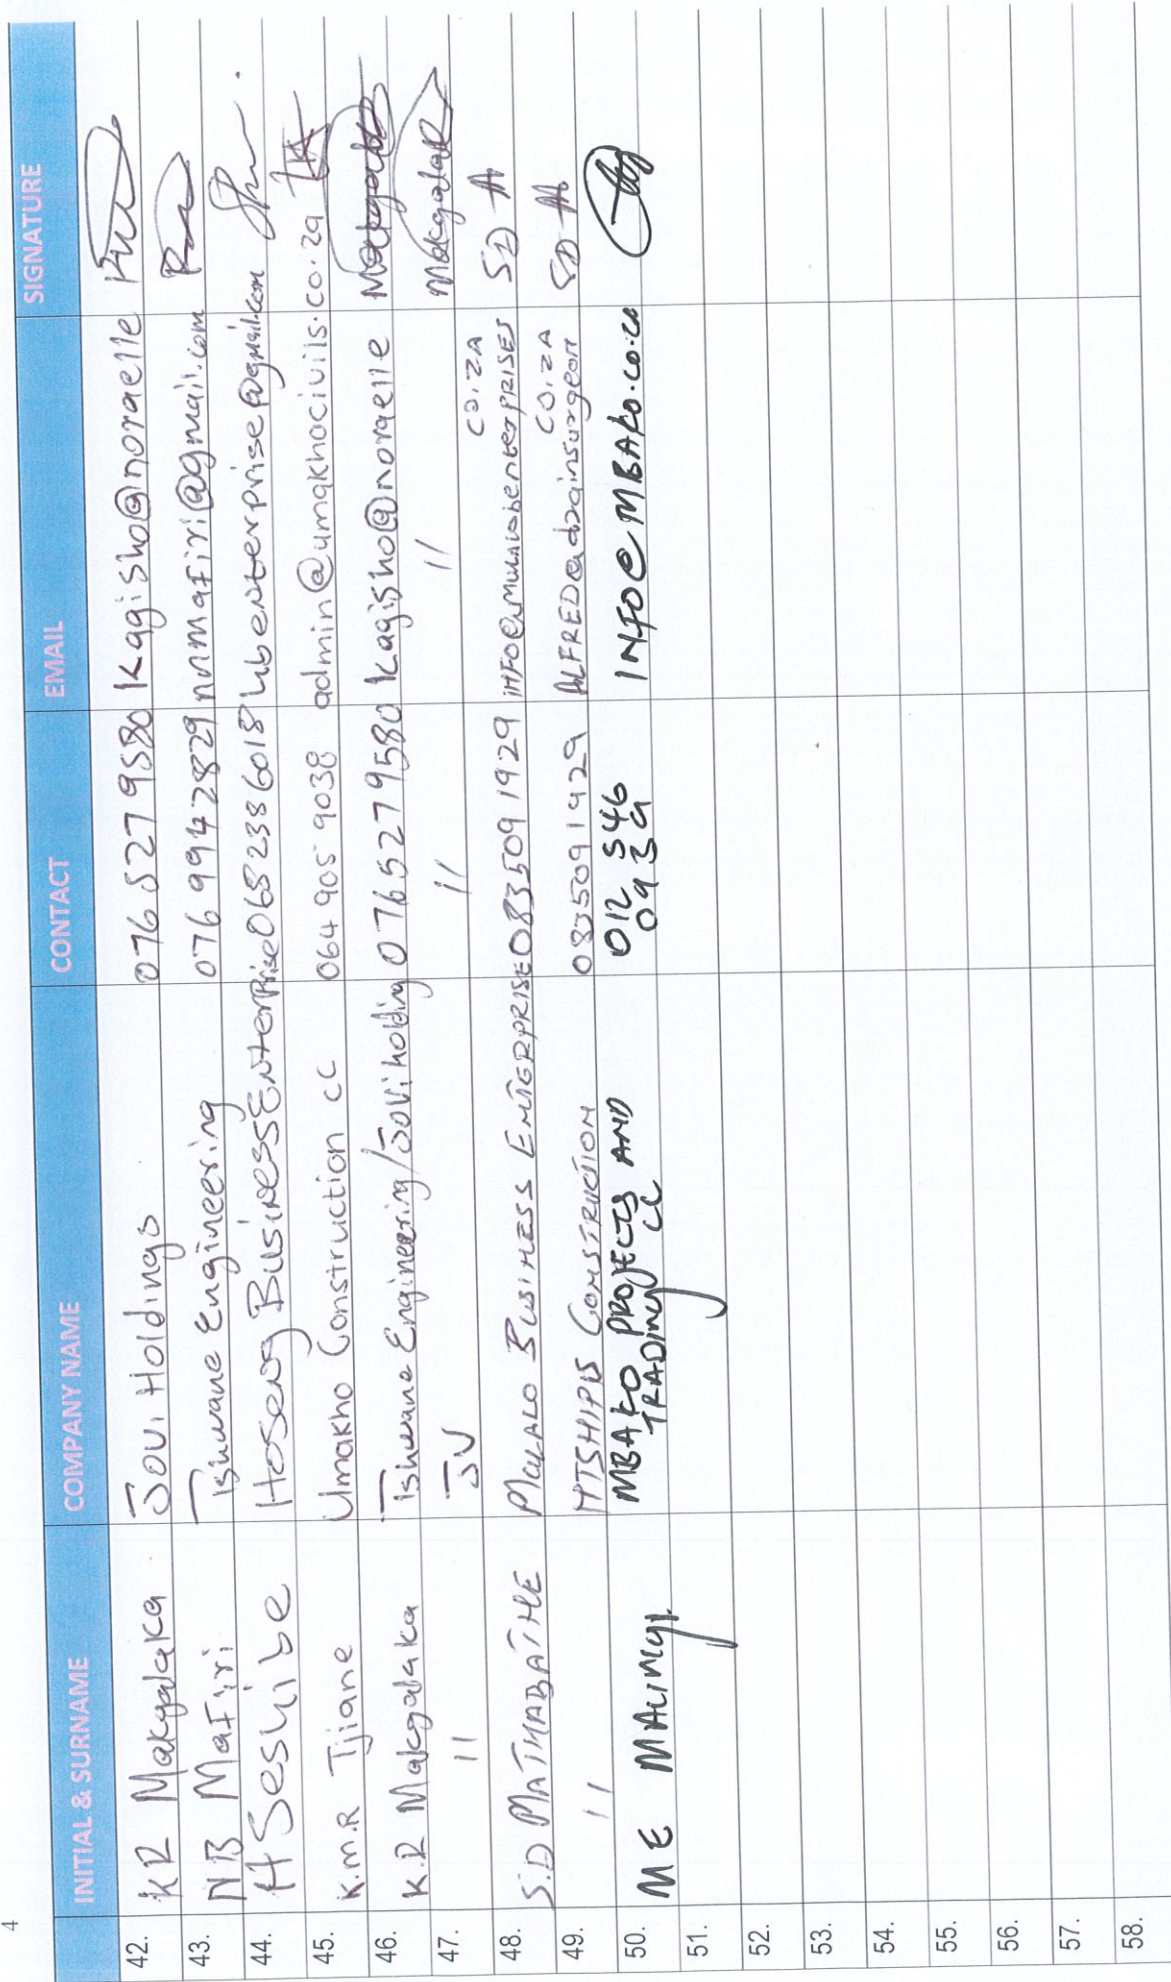 4
INITIAL & SURNAME COMPANY NAME CONTACT EMAIL SIGNATURE
42. KR Makgalaka Jovi Holdings 076 527 9580 Kagisho@noraelle
43. NB Mafiri Tshwane Engineering 076 994 2829 nnmafiri@gmail.com
44. H Seshibe Hoseng Business Enterprise 068 238 6018 hbenterprise@gmail.com
45. K.M.R Tjiane Umakho Construction cc 064 905 9038 admin@umakhocivils.co.za
46. K.R Makgalaka Tshwane Engineering/Jovi holding 076 527 9580 Kagisho@noraelle
47. 11 JV 11 11
48. S.D MATHABATHE MULALO BUSINESS ENTERPRISE 083 509 1929 INFO@MULALOBENTERPRISES
CO.ZA
49. 11 NTSHIPIS CONSTRUCTION 083 509 1929 ALFRED@adrainsurgeon
CO.ZA
50. ME MALINGA MBAKO PROJECTS AND 012 546 INFO@MBAKO.CO.ZA
TRADING CC 0939
51.
52.
53.
54.
55.
56.
57.
58.